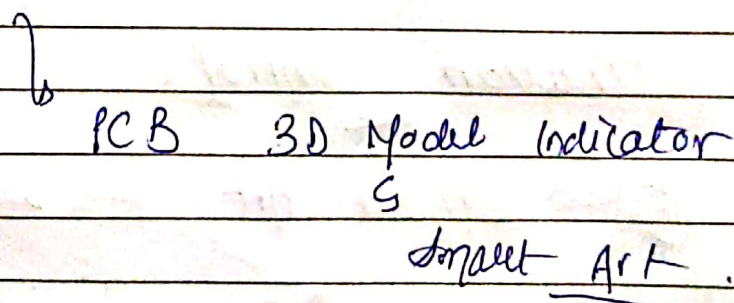 PCB 3D Model Indicator
Smart Art.